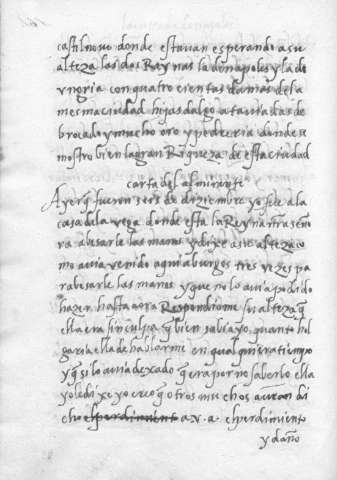 castilnouo donde estauan esperando a su
alteza las dos Reynas la de napoles y la de
vngria con quatrocientas damas de la
mesma ciudad hijas dalgo atauiadas de
brocado y mucho oro y pedreria donde se
mostro bien la gran Riqueza de esta ciudad
carta del almirante
Ayer q fueron seis de diziembre yo fue a la
casa de la vega donde esta la Reyna nra seño
ra a besarle las manos y dixe a su alteza co
mo auia venido aqui a burgos tres vezes pa
ra besarle las manos y que no lo auia podido
hazer hasta aora Respondiome su alteza q
ella era sin culpa q bien sabia yo quanto hol
garia ella de hablarme en qualquiera tiempo
y q si lo auia dexado q era por no saberlo ella
yo le dixe yo creo q otros muchos auran di
cho el perdimiento a.v.a. el perdimiento
y daño